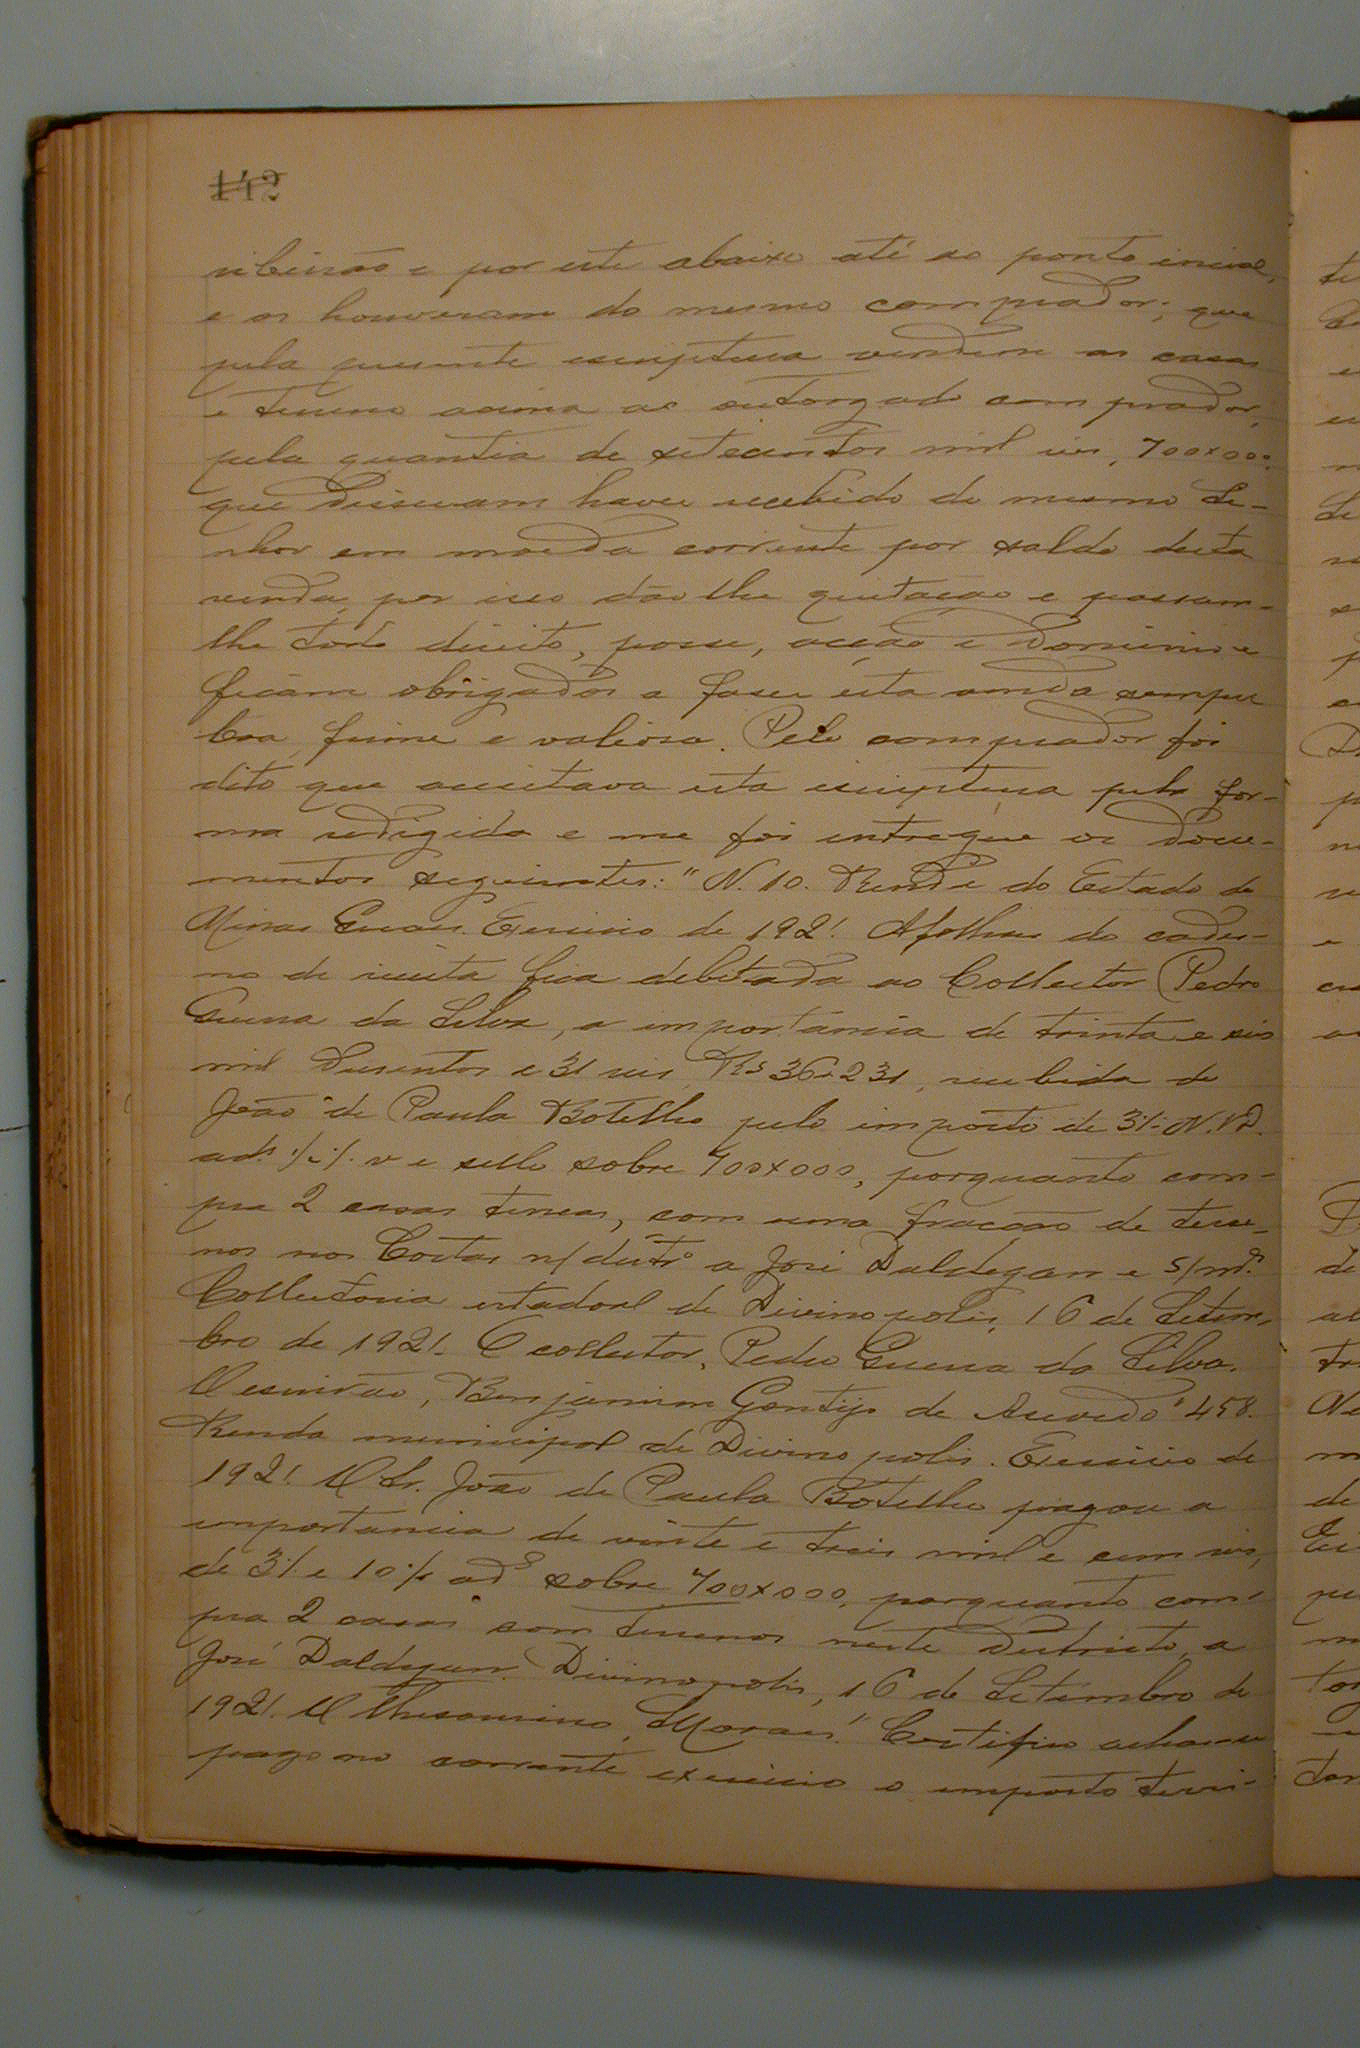 142
ribeirão e por este abaixo até ao ponto inicial,
e os houveram do mesmo comprador; que
pela presente escriptura vendem as casas
e terreno acima ao outorgado comprador,
pela quantia de setecentos mil reis, 700x000
que disseram haver recebido do mesmo Se-
nhor em moeda corrente por saldo desta
venda, por isso dão lhe quitação e passam-
lhe todo direito, posse, acção e dominio e
ficam obrigados a faser esta venda sempre
boa, firme e valiosa. Pelo comprador foi
dito que acceitava esta escriptura pela for-
ma redigida e me foi entregue os docu-
mentos seguintes: "N. 10. Renda do Estado de
Minas Geraes. Exercicio de 1921. A folhas do cader-
no de receita fica debitada ao Collector Pedro
Guerra da Silva, a importancia de trinta e seis
mil dusentos e 31 reis, Rs 36x231, recebida de
João de Paula Botelho pelo imposto de 3% N.V.D.
ad. v e sello sobre 700x000, porquanto com-
pra 2 casas terreas, com uma fracção de terre-
nos nos Costas n/distº a José Daldegan e s/mª.
Collectoria estadoal de Divinopolis, 16 de Setem-
bro de 1921. O collector, Pedro Guerra da Silva.
O escrivão, Benjamim Gontijo de Asevedo" 458.
Renda municipal de Divinopolis. Exercicio de
1921. O Sr. João de Paula Botelho pagou a
importancia de vinte e treis mil e cem reis,
de 3% e 10% ad sobre 700x000, porquanto com-
pra 2 casas com terrenos neste districto, a
José Daldegan. Divinopolis, 16 de Setembro de
1921. O Thesoureiro, Moraes." Certifico achar-se
pago no corrente exercicio o imposto terri-